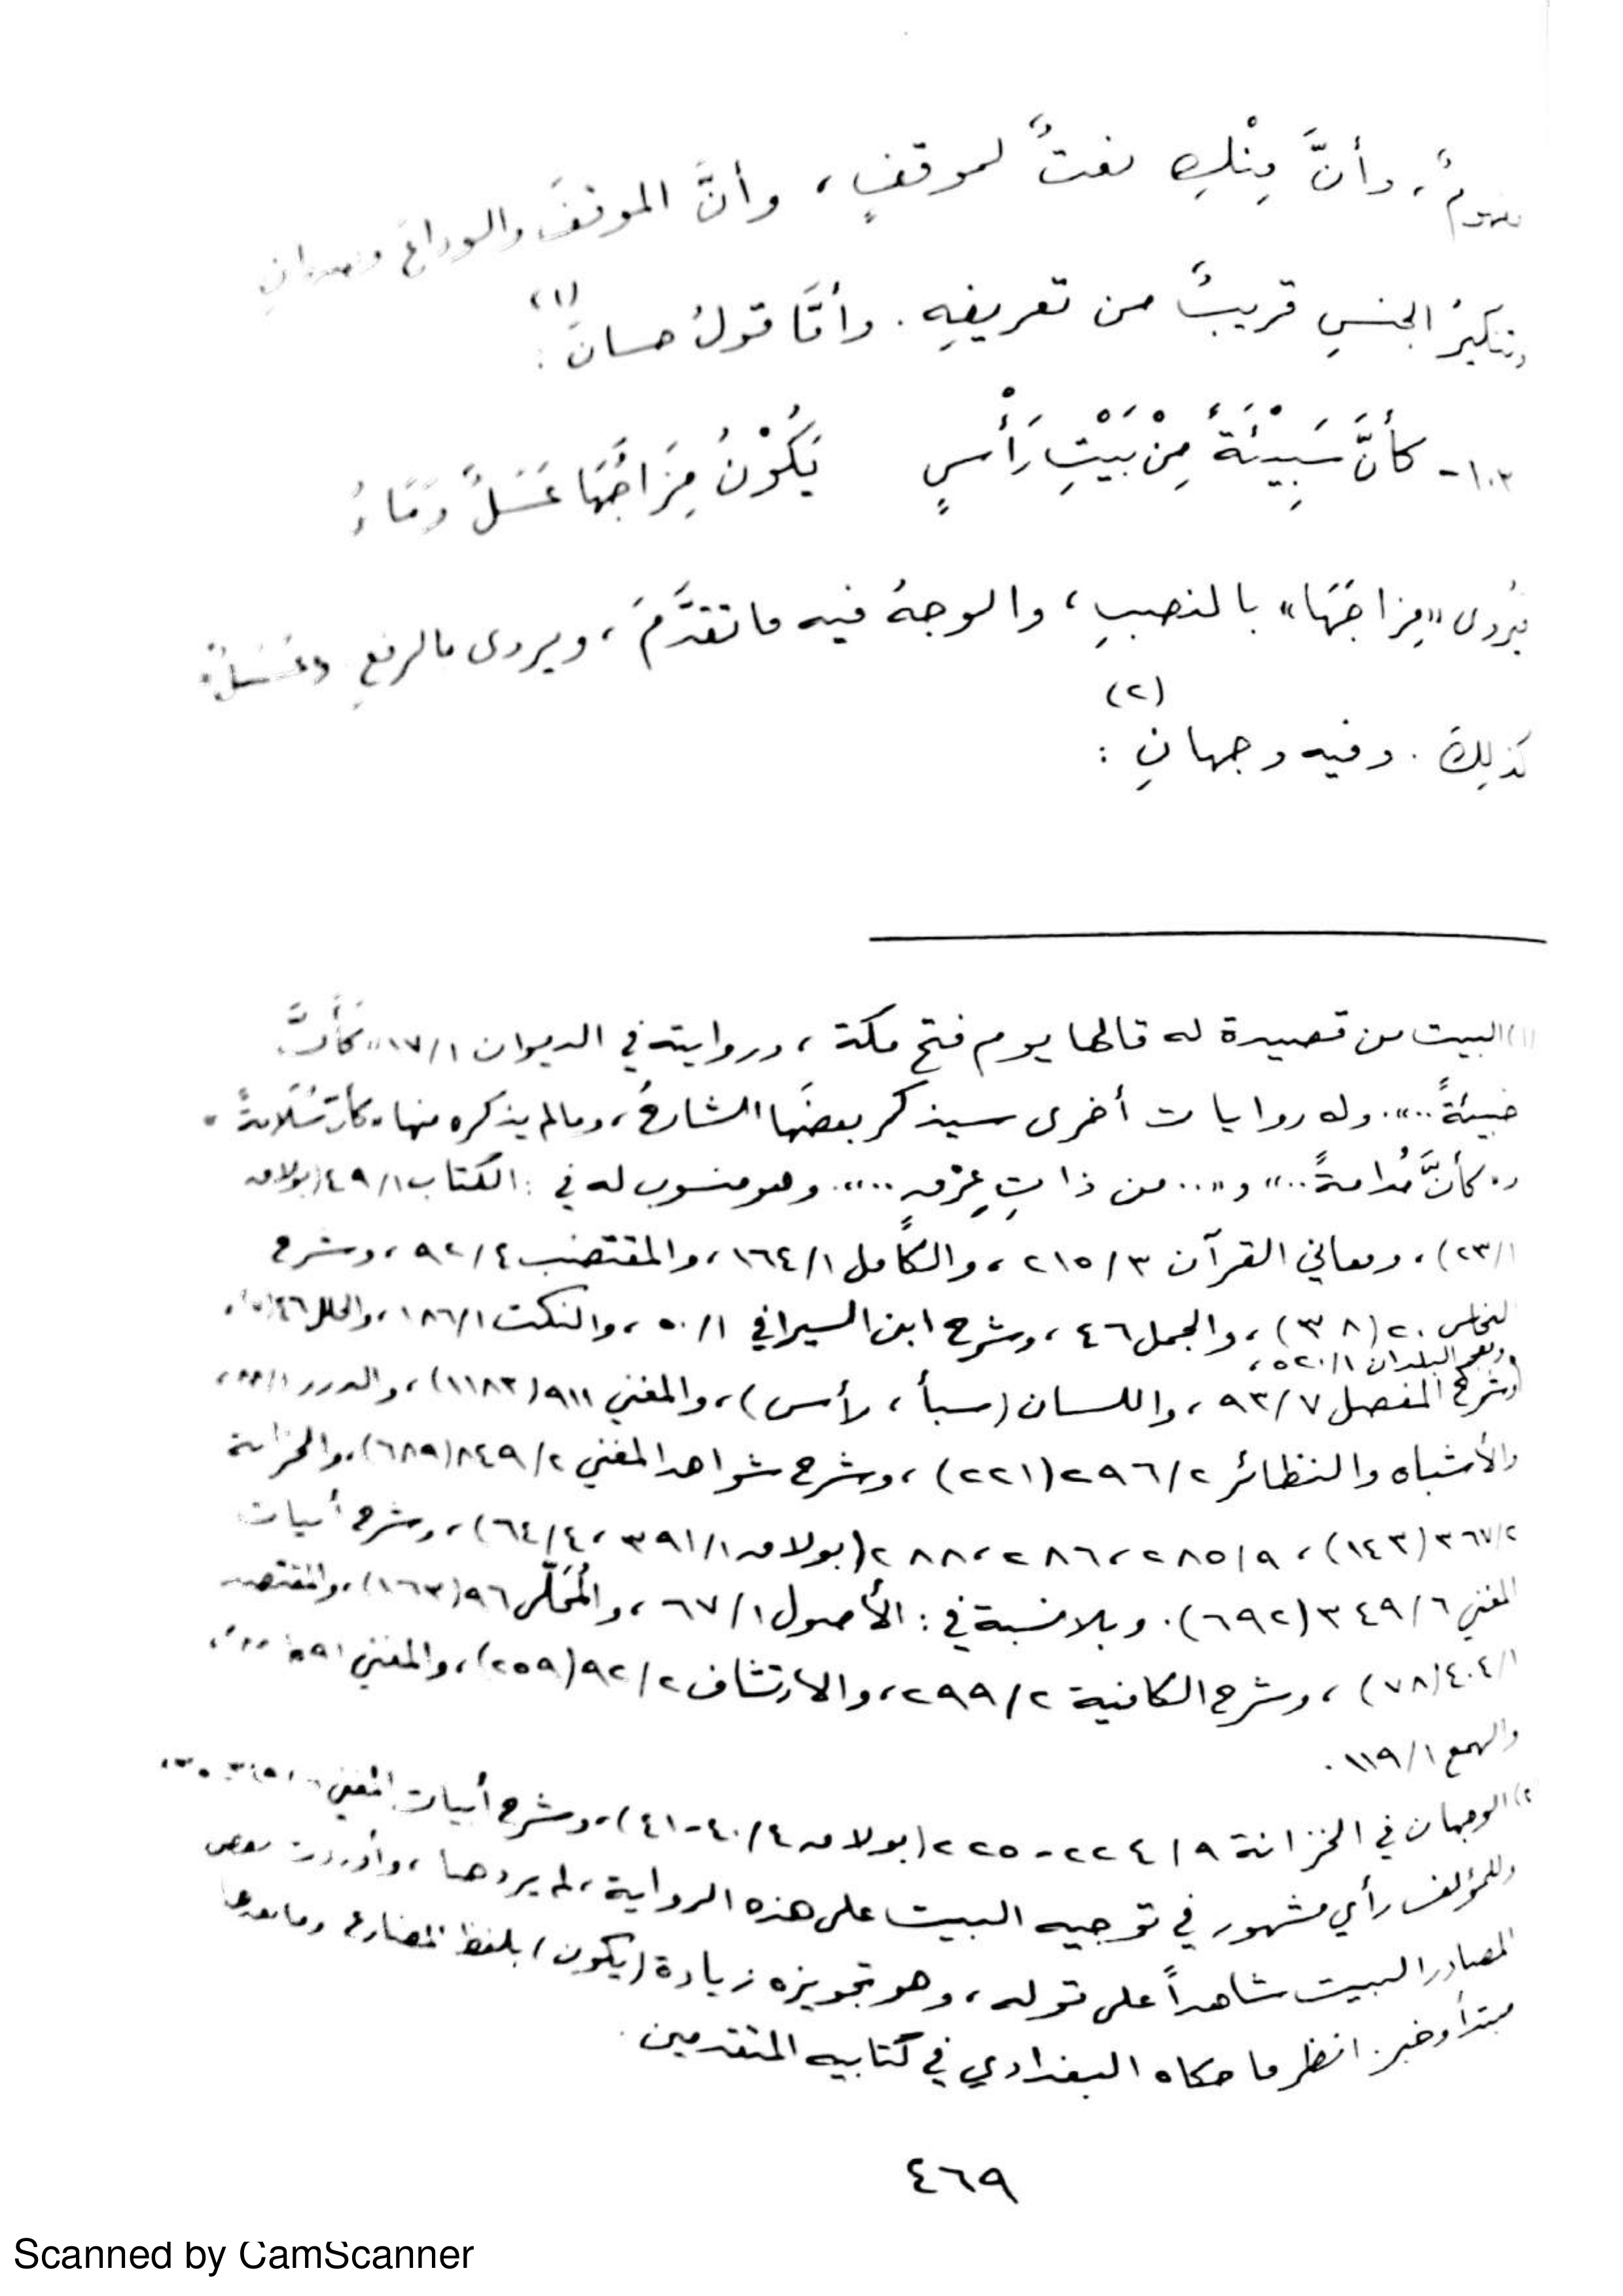 وأنَّ مِنْكِ نعتٌ لموقفٍ، وأنَّ الموقفَ والوداعَ
وتنكيرُ الجنسِ قريبٌ من تعريفِهِ. وأمَّا قولُ حسانَ (١):
١٠٣- كأنَّ سَبِيْئَةً مِنْ بَيْتِ رَأْسٍ يَكُوْنُ مِزَاجُهَا عَسَلٌ وَمَاءُ
فيُروى «مِزاجَهَا» بالنصبِ، والوجهُ فيه ما تقدَّمَ، ويروى بالرفعِ وعَسَلٌ
كذلِكَ. وفيه وجهانِ (٢):
(١) البيت من قصيدة له قالها يوم فتح مكة، وروايته في الديوان ١/١٧ «كَأَنَّ
خبيئةً...». وله روايات أخرى سيذكر بعضَها الشارحُ، ومالم يذكره منها «كأن سُلافةً»
و«كأنَّ مُدامةً...» و«... من ذاتِ عِرْقٍ...». وهو منسوب له في: الكتاب ١/٤٩ (بولاق
١/٢٣)، ومعاني القرآن ٣/٢١٥، والكامل ١/١٦٤، والمقتضب ٤/٩٢، وشرح
النحاس ٢٠ (٣٨)، والجمل ٤٦، وشرح ابن السيرافي ١/٥٠، والنكت ١/١٨٦، والحلل ٤٦
ومعجم البلدان ١/٥٢٠،
وشرح المفصل ٧/٩٣، واللسان (سبأ، رأس)، والمغني ٩١١ (١١٨٣)، والدرر
والأشباه والنظائر ٢/٢٩٦ (٢٢١)، وشرح شواهد المغني ٢/٨٤٩ (٦٨٩)، والخزانة
٢/٣٦٧ (١٤٣)، ٩/٢٨٥، ٢٨٦، ٢٨٨ (بولاق ١/٣٩١، ٤/٦٤)، وشرح أبيات
المغني ٦/٣٤٩ (٦٩٢). وبلا نسبة في: الأصول ١/٦٧، والمُحَلّى ٩٦ (١٦٣)، والمقتصد
١/٤٠٤ (٧٨)، وشرح الكافية ٢/٢٩٩، والارتشاف ٢/٩٢ (٢٥٩)، والمغني
والهمع ١/١١٩.
٢) الوجهان في الخزانة ٩/٢٢٤-٢٢٥ (بولاق ٤/٤٠-٤١)، وشرح أبيات المغني
وللمؤلف رأي مشهور في توجيه البيت على هذه الرواية، لم يردها، وأوردت بعض
المصادر البيت شاهداً على قوله، وهو تجويزه زيادة (يكون) بلفظ المضارع وما بعدها
مبتدأ وخبر. انظر ما حكاه البغدادي في كتابيه المتقدمين.
٤٦٩
Scanned by CamScanner